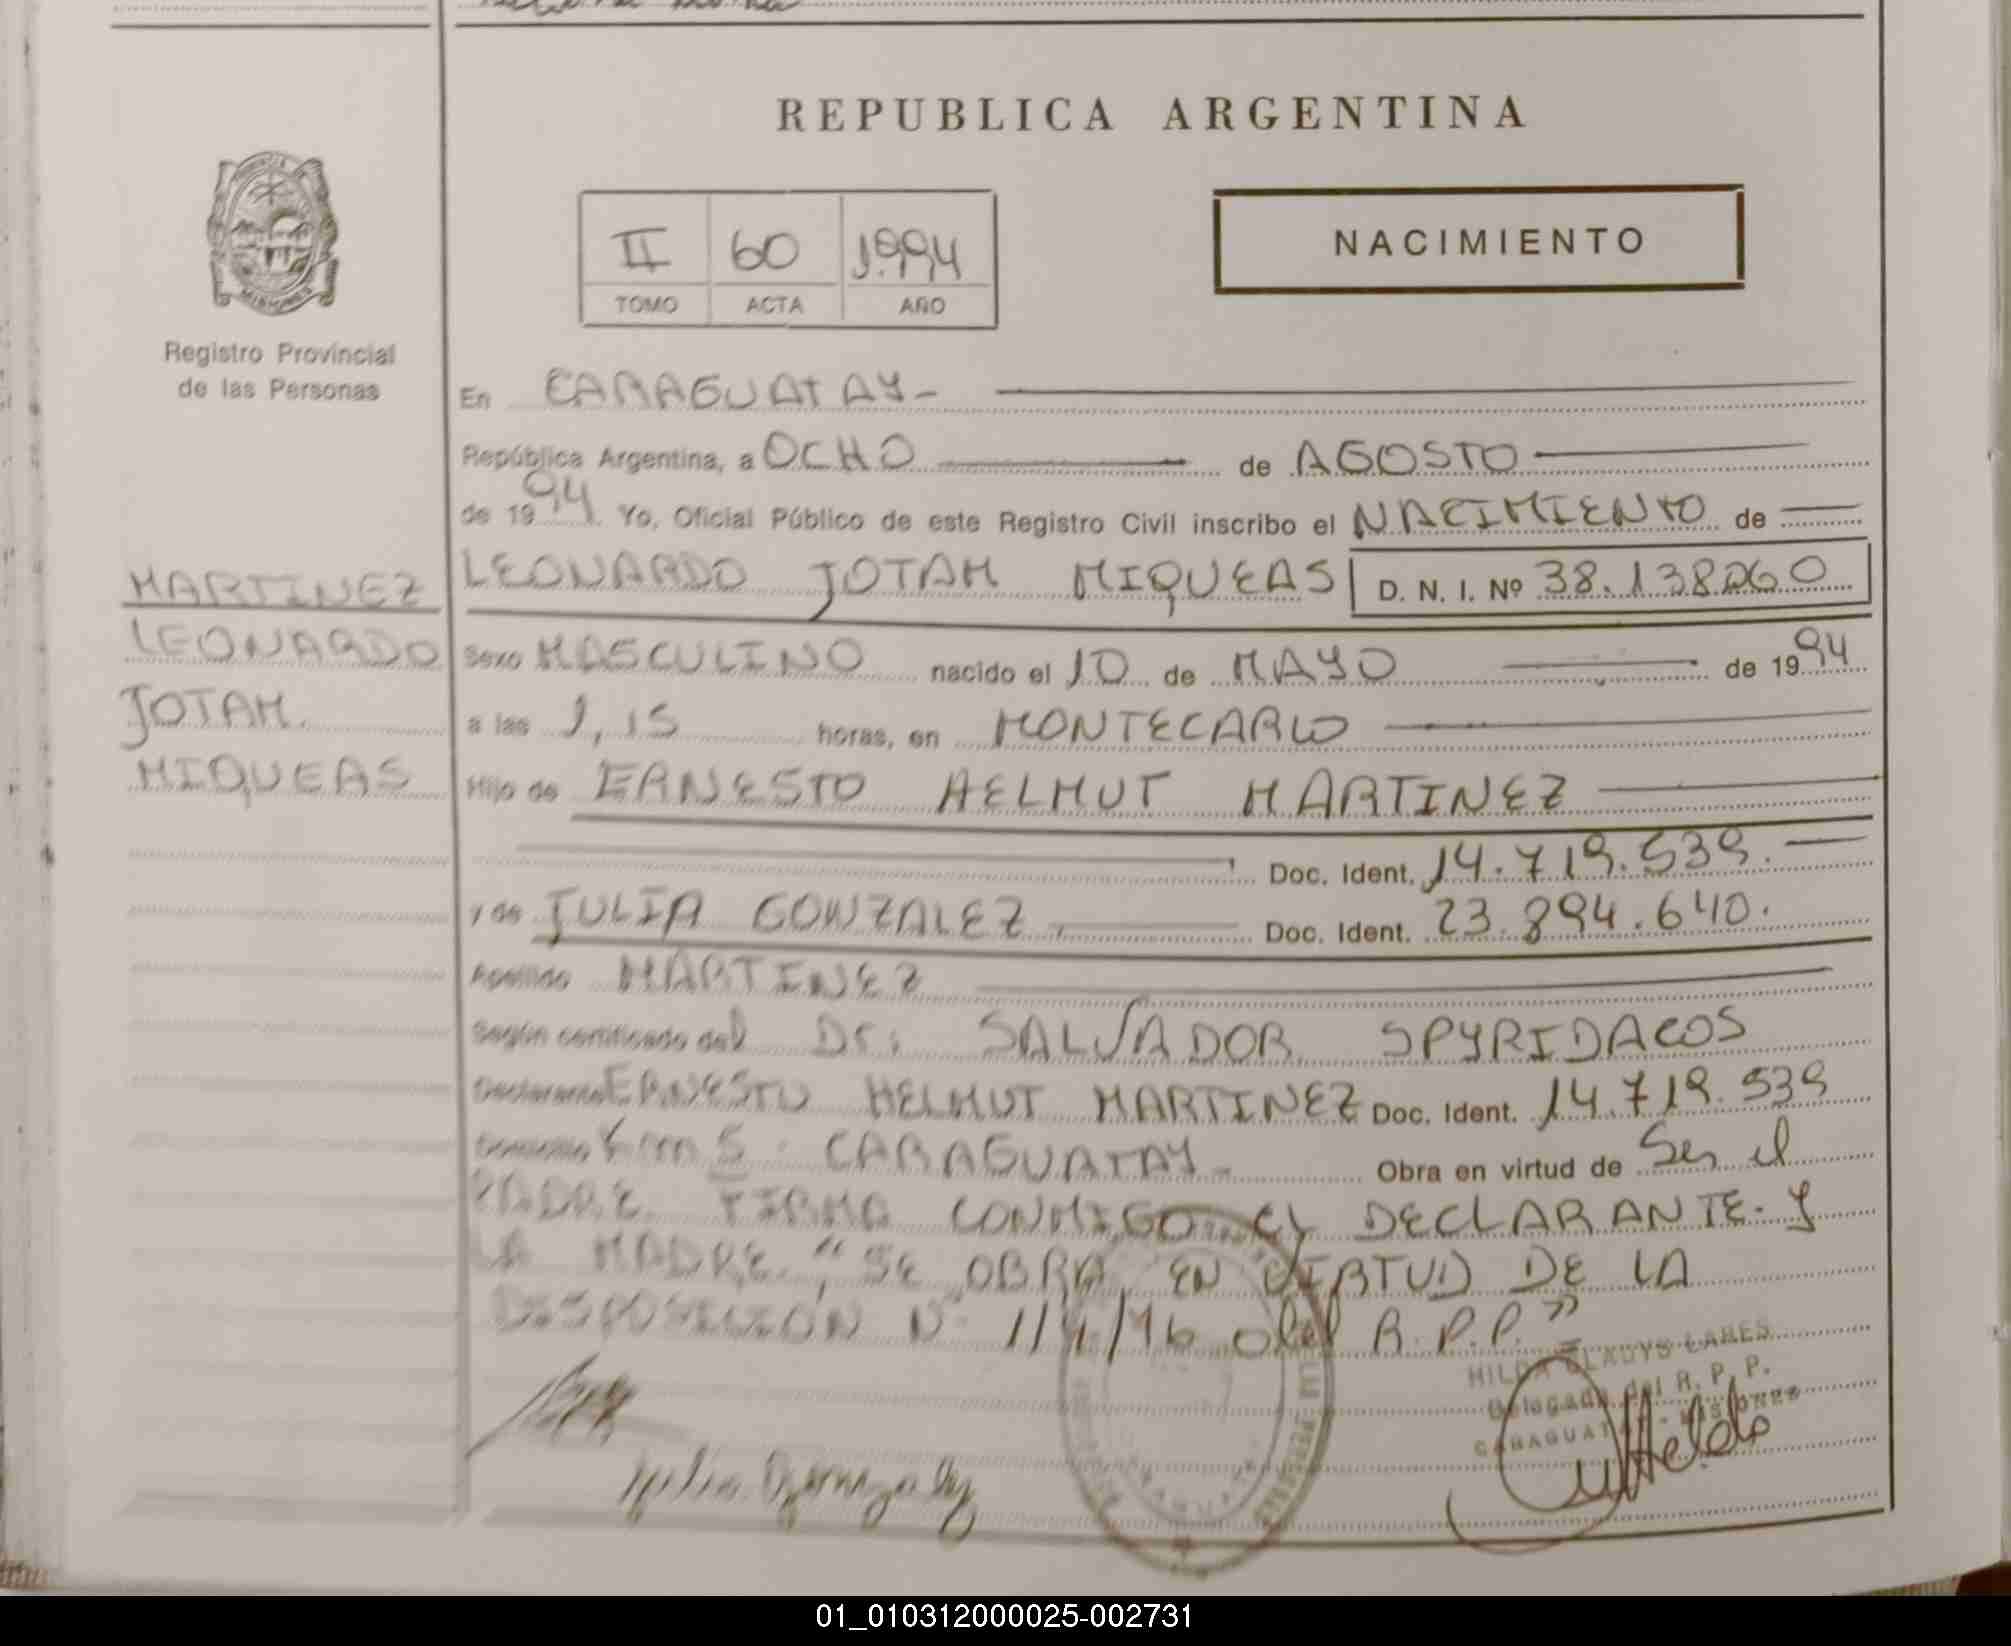 REPUBLICA ARGENTINA
II 60 1.994
TOMO ACTA AÑO
NACIMIENTO
MISIONES
Registro Provincial
de las Personas
MARTINEZ
LEONARDO
JOTAM
MIQUEAS
En CARAGUATAY-
República Argentina, a OCHO de AGOSTO
de 1994. Yo, Oficial Público de este Registro Civil inscribo el NACIMIENTO de
LEONARDO JOTAM MIQUEAS D. N. I. Nº 38.138.060
Sexo MASCULINO nacido el 10 de MAYO de 1994
a las 1,15 horas, en MONTECARLO
Hijo de ERNESTO HELMUT MARTINEZ
Doc. Ident. 14.719.539.
y de JULIA GONZALEZ Doc. Ident. 23.894.640.
Apellido MARTINEZ
Según certificado del Dr. SALVADOR SPYRIDACOS
Declarante ERNESTO HELMUT MARTINEZ Doc. Ident. 14.719.539
Domicilio Km 5. CARAGUATAY- Obra en virtud de Ser el
PADRE FIRMA CONMIGO EL DECLARANTE. Y
LA MADRE. "SE OBRA EN VIRTUD DE LA
DISPOSICION Nº del R.P.P."
HILDA GLADYS LARES
Delegada del R. P. P.
CARAGUATAY - MISIONES
Julia Gonzalez
01_010312000025-002731